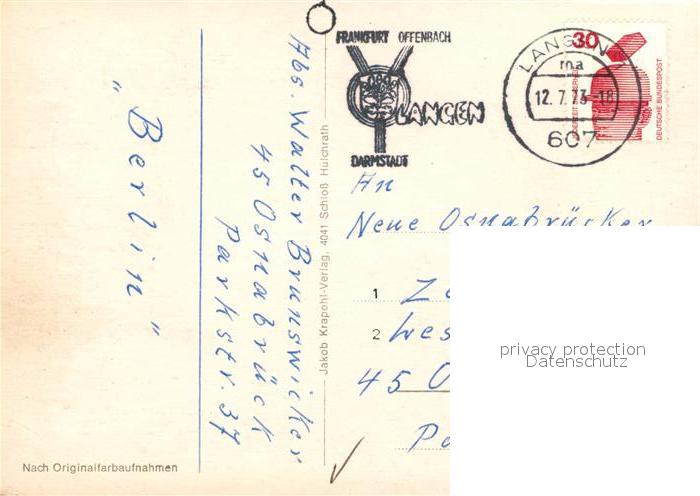 FRANKFURT OFFENBACH
LANGEN
DARMSTADT
LANGEN
ma
12.7.73-18
607
30
DEUTSCHE BUNDESPOST
An
Neue Osnabrücker
1 Ze
2 Wes
45 O
Po
privacy protection
Datenschutz
Jakob Krapohl-Verlag, 4041 Schloß Hülchrath
Abs. Walter Brunswicker
45 Osnabrück
Parkstr. 37
"Berlin"
Nach Originalfarbaufnahmen